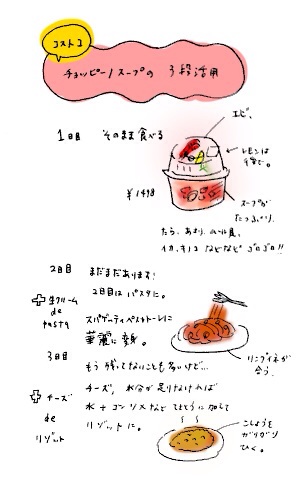 コストコ
チョッピーノスープの 3段活用
1日目 そのまま食べる
エビ、
レモンは
¥1498
スープが
たっぷり。
たら、あさり、ムール貝、
イカ、キノコ などなど ゴロゴロ!!
2日目 まだまだあります!
2日目は パスタに。
+生クリーム
de
pasta
スパゲッティペストトーレに
華麗に変身。
リングイネが
合う。
3日目
もう 残ってないことも 多いけど…
+チーズ
de
リゾット
チーズ、水分が足りなければ
水 + コンソメなど てきとうに加えて
リゾットに。
こしょうを
ガリガリ
ひく。